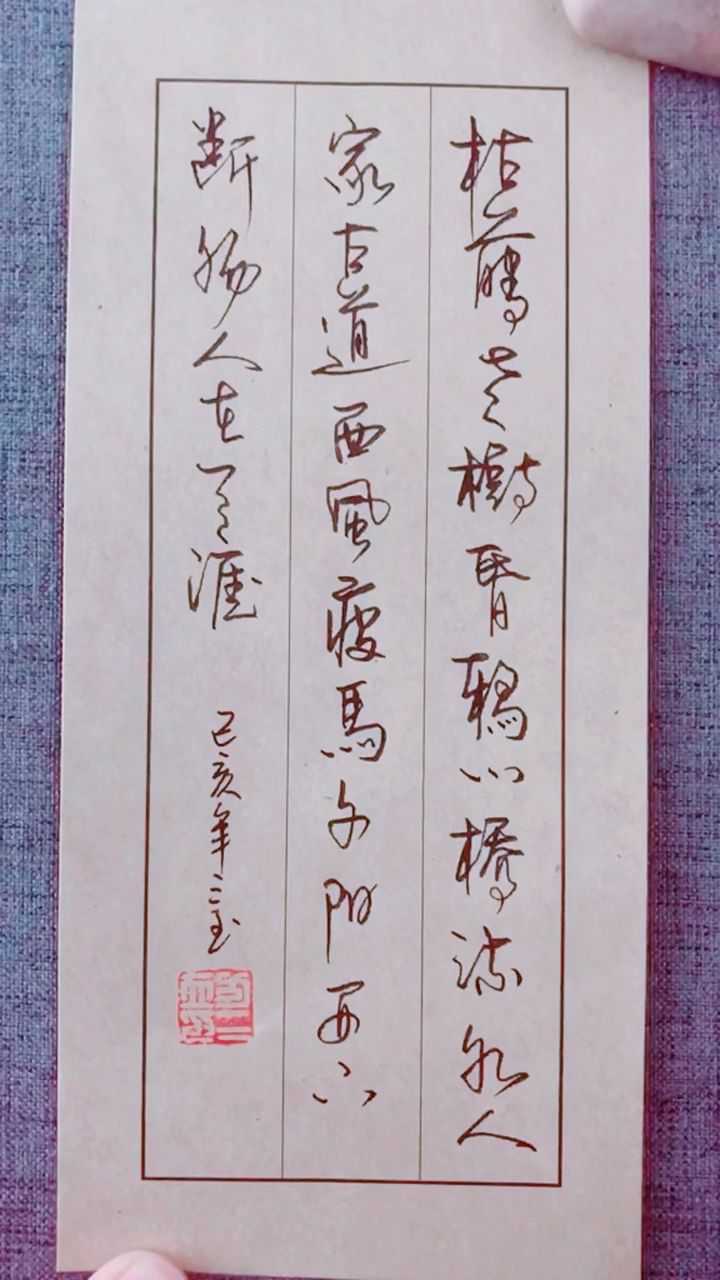 枯藤老樹昏鴉小橋流水人
家古道西風瘦馬夕阳西下
断肠人在天涯
己亥年二玉